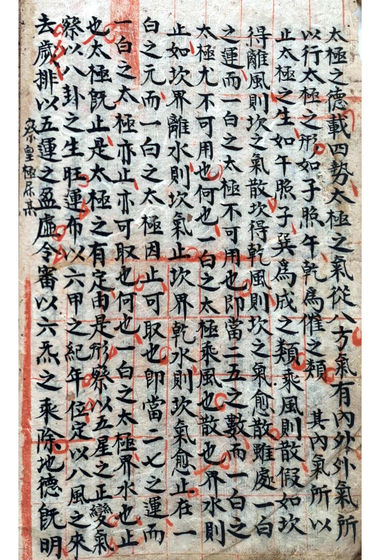 太極之德載四勢太極之氣從八方氣有內外外氣所
以行太極之形如子照午乾為催之類其內氣所以
止太極之生如午照子巽為成之類乘風則散假如坎
得離風則坎之氣散坎得乾風則坎之氣愈散雖處一白
之運而一白之太極不可用也即當二五之數而一白之
太極尤不可用也何也一白之太極乘風也散也界水則
止如坎界離水則坎氣止坎界乾水則坎氣愈止在一
白之元而一白之太極因止可取也即當一七之運而
一白之太極亦止亦可取也何也一白之太極界水也止
也太極既止是太極之有定由是形察以五星之正變氣
察以八卦之生旺運布以六甲之紀年位定以八風之來
去歲排以五運之盈虛令審以六炁之乘除地德既明
察皇極